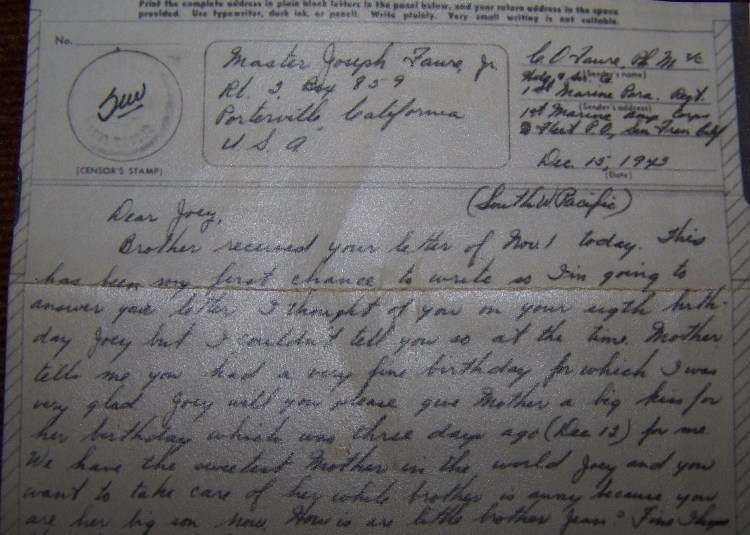 Print the complete address in plain block letters in the panel below, and your return address in the space
provided. Use typewriter, dark ink, or pencil. Write plainly. Very small writing is not suitable.
No.
(CENSOR'S STAMP)
Master Joseph Faure, Jr.
Rt. 2 Box 859
Porterville California
U. S. A.
C. O. Faure, Ph. M
(Sender's name)
1st Marine Para. Regt.
(Sender's address)
1st Marine Amp. Corps
Fleet P.O., San Fran Calif
Dec. 15, 1943
(Date)
(South W Pacific)
Dear Joey,
Brother received your letter of Nov 1 today. This
has been my first chance to write so I'm going to
answer your letter I thought of you on your eigth birth-
day Joey but I couldn't tell you so at the time. Mother
tells me you had a very fine birthday for which I was
very glad. Joey will you please give Mother a big kiss for
her birthday which was three days ago (Dec 12) for me.
We have the sweetest Mother in the world Joey and you
want to take care of her while brother is away because you
are her big son now. How is are little brother Jean? Fine I hope